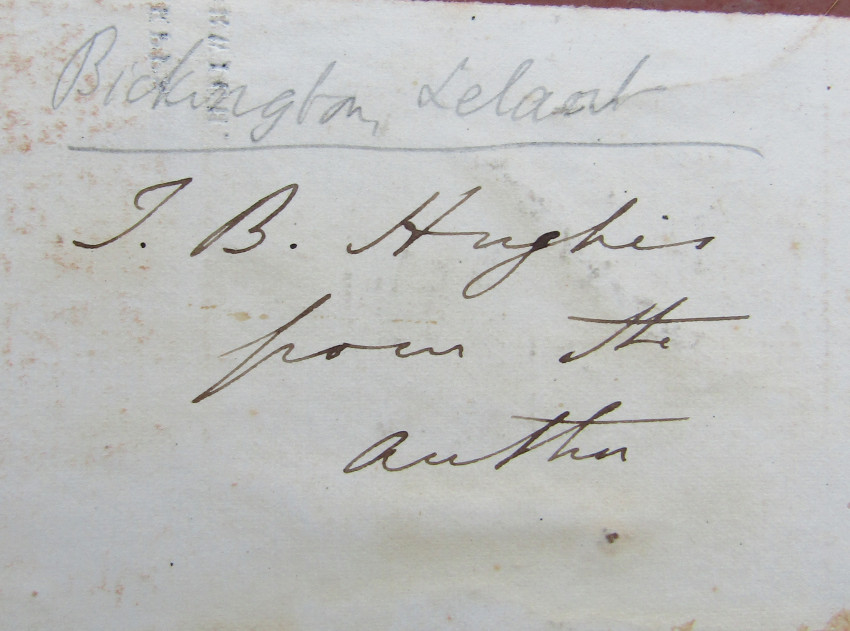 Bickington, Lelant
T. B. Hughes
from the
author